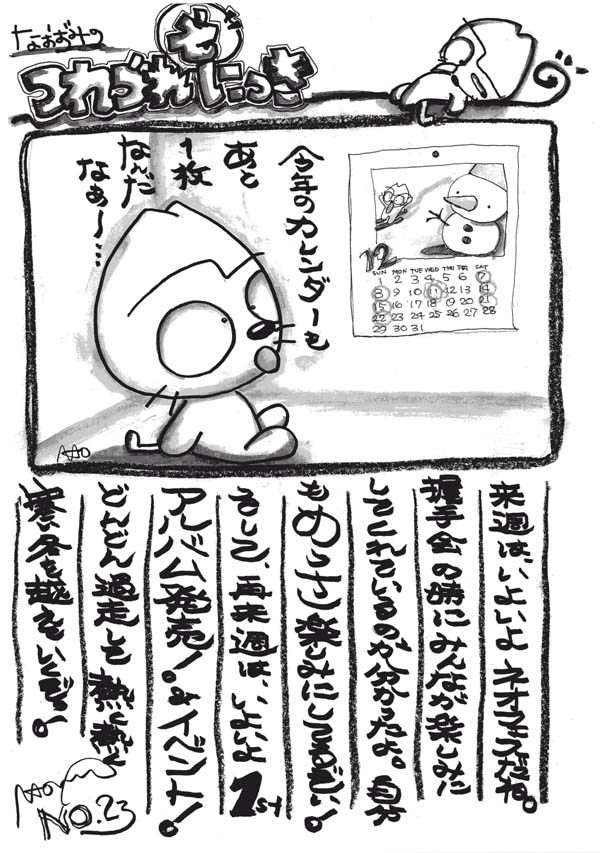 なおおみの
つれづれ
ゼ
にっき
今年のカレンダーも
あと
1枚
なんだ
なぁ〜…
12
SUN MON TUE WED THU FRI SAT
1 2 3 4 5 6 7
8 9 10 11 12 13 14
15 16 17 18 19 20 21
22 23 24 25 26 27 28
29 30 31
NAO
来週は、いよいよネオフェスだね。
握手会の時にみんなが楽しみに
してくれているのが分かったよ。自分
もめっさ楽しみにしてるぜぃ!
そして、再来週は、いよいよ1st
アルバム発売!&イベント!
どんどん過走して熱く熱く
寒い冬を越えていくぜっ。
NAO
NO.23